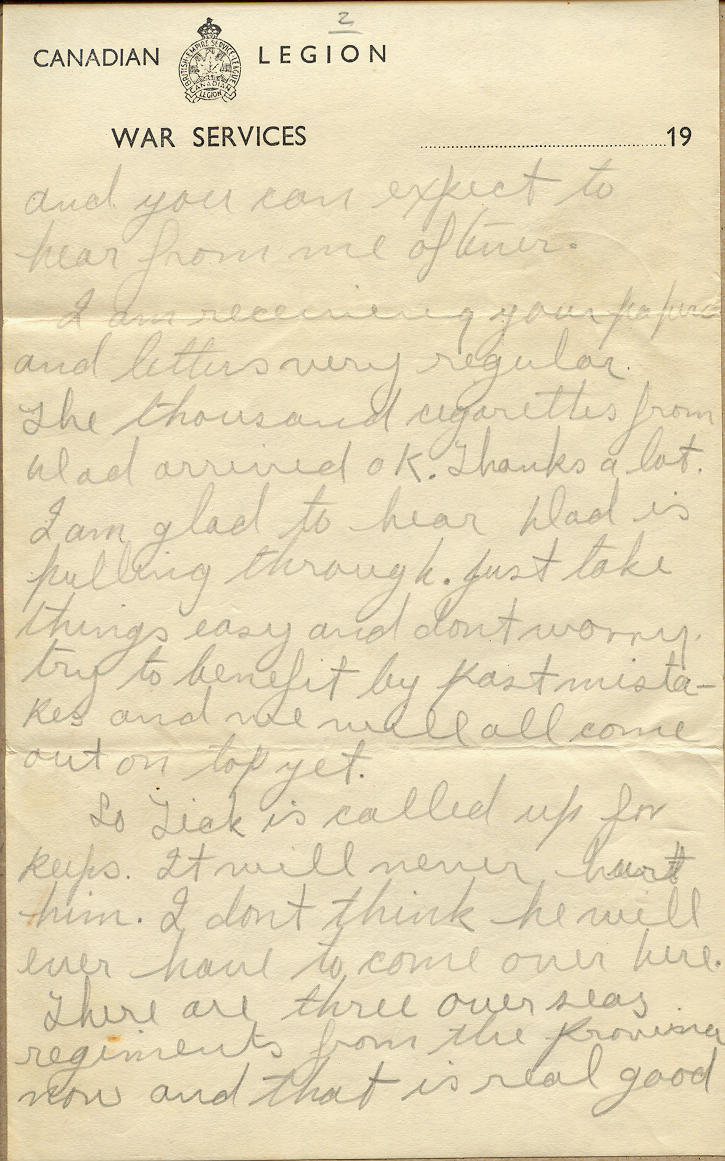 2
CANADIAN LEGION
BRITISH EMPIRE SERVICE LEAGUE
CANADIAN
LEGION
WAR SERVICES ..........19
and you can expect to
hear from me oftener.
I am receiving your papers
and letters very regular.
The thousand cigarettes from
Dad arrived OK. Thanks a lot.
I am glad to hear Dad is
pulling through. just take
things easy and dont worry.
try to benefit by past mista-
kes and we will all come
out on top yet.
So is called up for
keeps. It will never hurt
him. I dont think he will
ever have to come over here.
There are three overseas
regiments from the province
now and that is real good